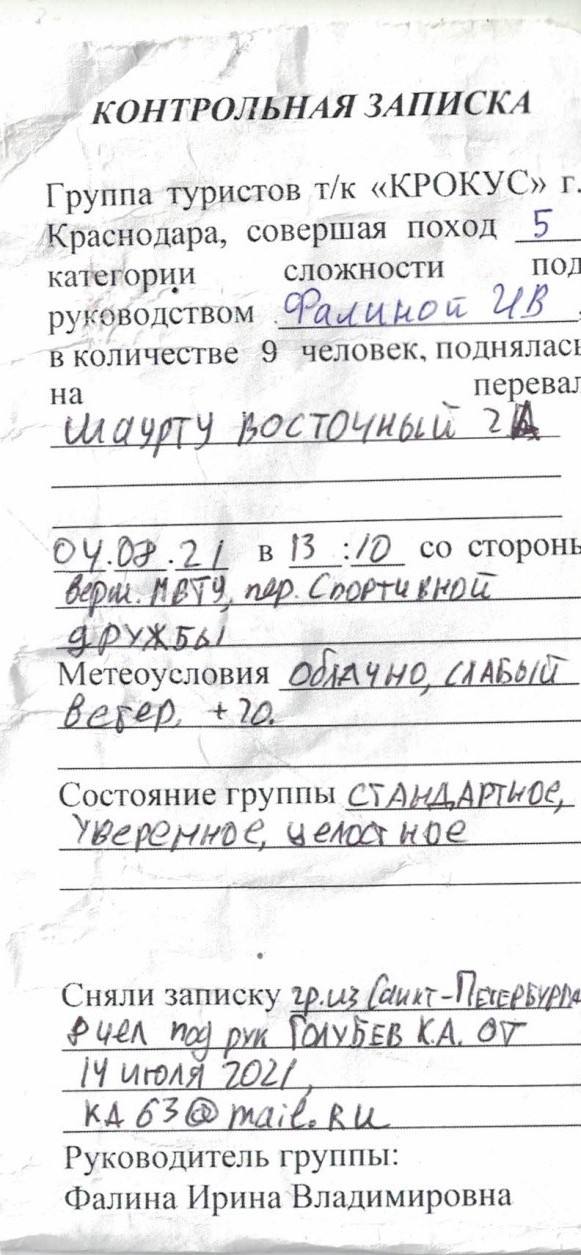 КОНТРОЛЬНАЯ ЗАПИСКА
Группа туристов т/к «КРОКУС» г.
Краснодара, совершая поход 5
категории сложности под
руководством Фалиной ИВ,
в количестве 9 человек, поднялась
на перевал
Шаурту Восточный 2А
04.08.21 в 13:10 со стороны
верш. МВТУ, пер. Спортивной
дружбы
Метеоусловия Облачно, слабый
ветер, +20.
Состояние группы стандартное,
уверенное, целостное
Сняли записку гр. из Санкт-Петербурга
чел под рук Голубев К.А. от
14 июля 2021,
KA63@mail.RU
Руководитель группы:
Фалина Ирина Владимировна